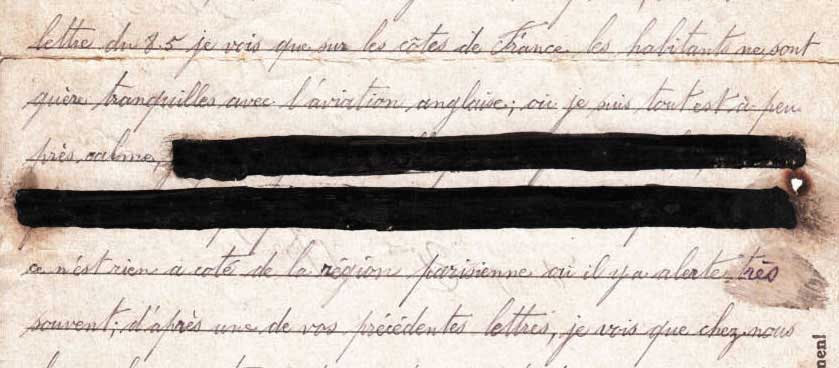 lettre du 8.5 je vois que sur les côtes de France les habitants ne sont
guère tranquilles avec l'aviation anglaise; où je suis tout est à peu
près calme,
ce n'est rien a coté de la région parisienne où il y a alerte très
souvent; d'après une de vos précédentes lettres, je vois que chez nous
men!